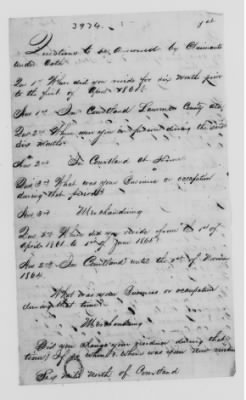 3974.
Questions to be Answered by Claimants
under Oath
Ques 1st Where did you reside for six month prior
to the first of April 1861?
Ans 1st In Courtland Lawrence County Ala
Ques 2nd Where were you in person during the said
six months
Ans 2nd In Courtland at Home
Ques 3rd What was your Business or occupation
during that period
Ans 3rd Merchandising
Ques 5th Where did you reside from 1st of
April 1861 to 1st of June 1865
Ans In Courtland until the of
1864
What was your Business or occupation
during that time
Merchandising
Did you change your residence during that
time, If so where & where was your new residence
Miles North of Courtland